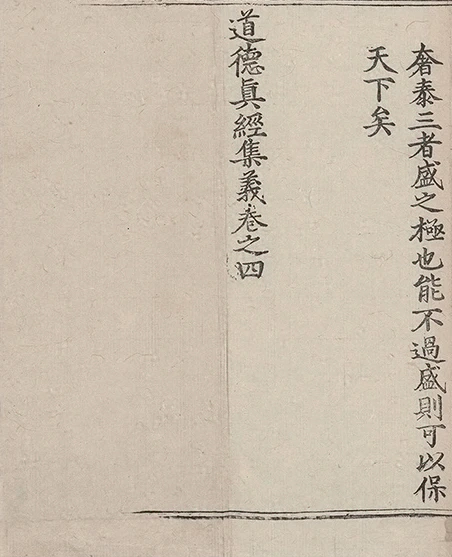 奢泰三者盛之極也能不過盛則可以保
天下矣
道德眞經集義卷之四